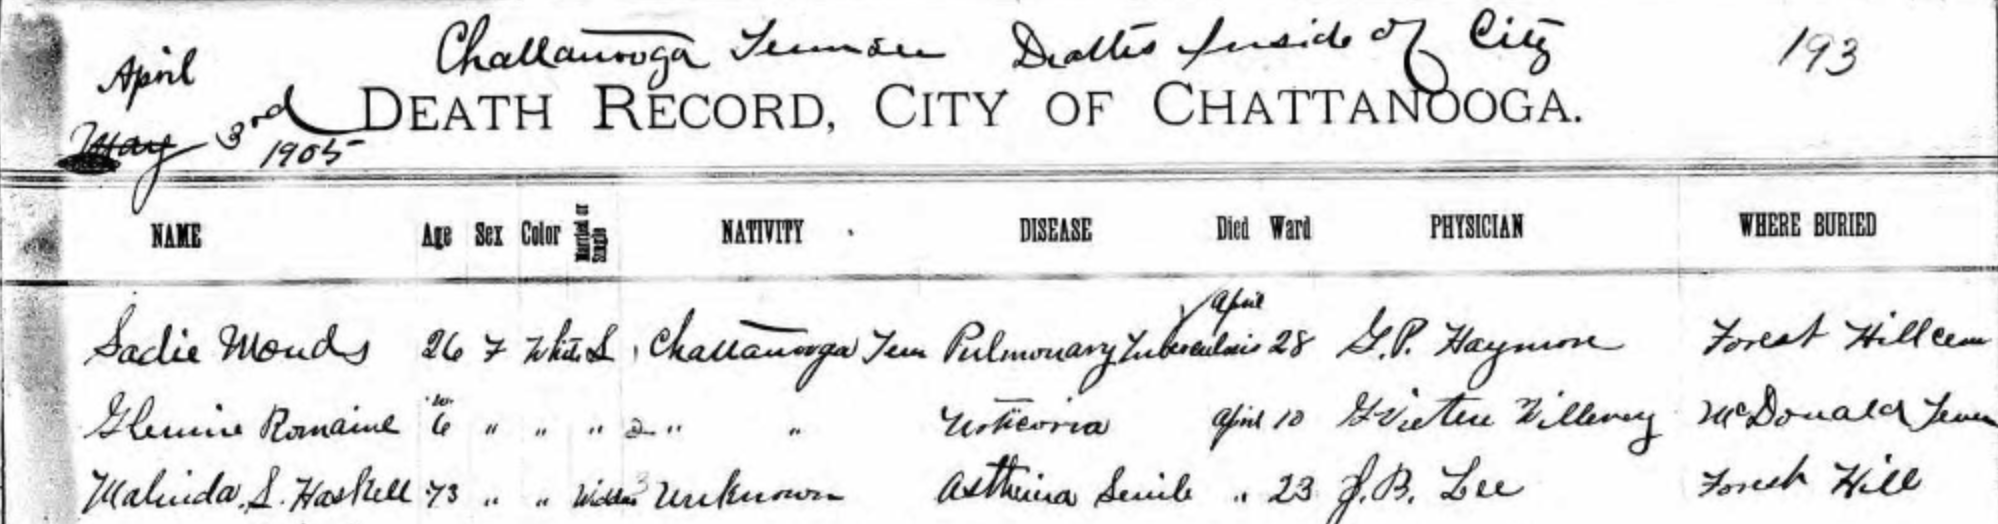 Chattanooga Tennsee Deaths Inside of City 193
April
May 3rd 1905
DEATH RECORD, CITY OF CHATTANOOGA.
NAME Age Sex Color Married or Single NATIVITY DISEASE Died Ward PHYSICIAN WHERE BURIED
Sadie Monds 26 F White S Chattanooga Tenn Pulmonary Tuberculosis April 28 G.P. Haymore Forest Hill cem
Romaine 6 " " " 2 " " April 10 McDonald Tenn
Malinda. S. Haskell 73 " " Widow 3 Unknown Asthenia Senile " 23 J.B. Lee Forest Hill